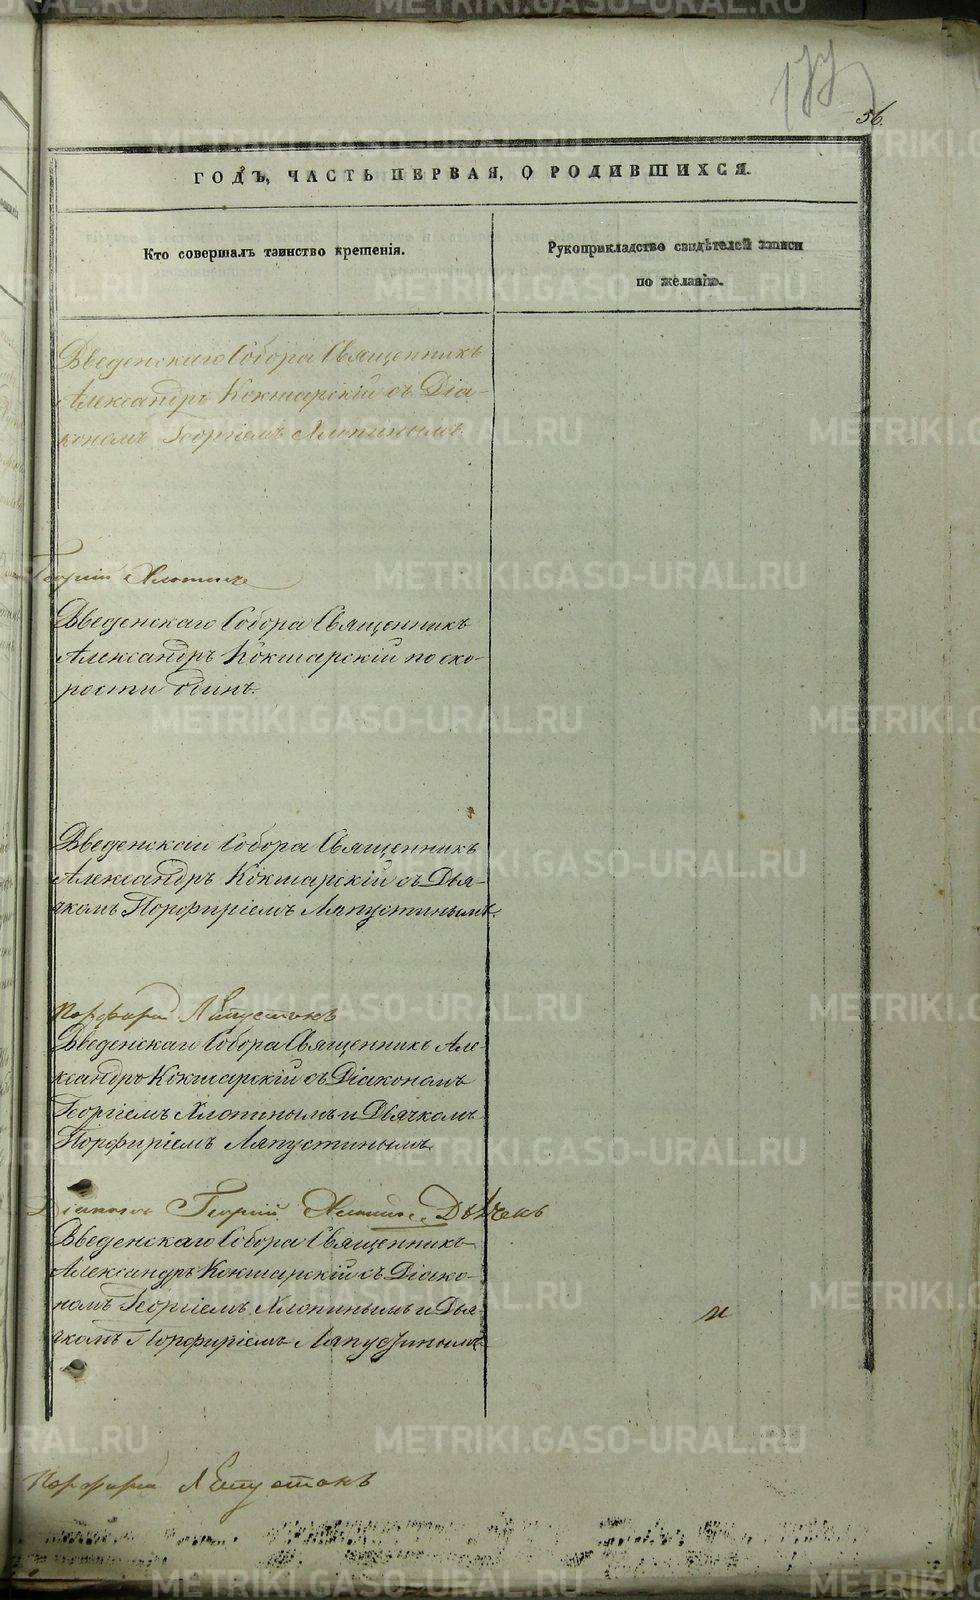 177
56.
ГОДЪ, ЧАСТЬ ПЕРВАЯ, О РОДИВШИХСЯ.
Кто совершалъ таинство крещенія.
Рукоприкладство свидѣтелей записи
по желанію.
Введенскаго Собора Священникъ
Александръ Кокшарскій съ Діа-
кономъ Георгіемъ Хлопинымъ.
Георгій Хлопинъ
Введенскаго Собора Священникъ
Александръ Кокшарскій по ско-
рости одинъ.
Введенскаго Собора Священникъ
Александръ Кокшарскій съ Дья-
чкомъ Порфиріемъ Ляпустинымъ.
Порфирій Ляпустинъ
Введенскаго Собора Священникъ Але-
ксандръ Кокшарскій съ Діакономъ
Георгіемъ Хлопинымъ и Дьячкомъ
Порфиріемъ Ляпустинымъ.
Діаконъ Георгій Хлопинъ. Дьячекъ
Введенскаго Собора Священникъ
Александръ Кокшарскій съ Діако-
номъ Георгіемъ Хлопинымъ и Дья-
чкомъ Порфиріемъ Ляпустинымъ
и
Порфирій Ляпустинъ
METRIKI.GASO-URAL.RU